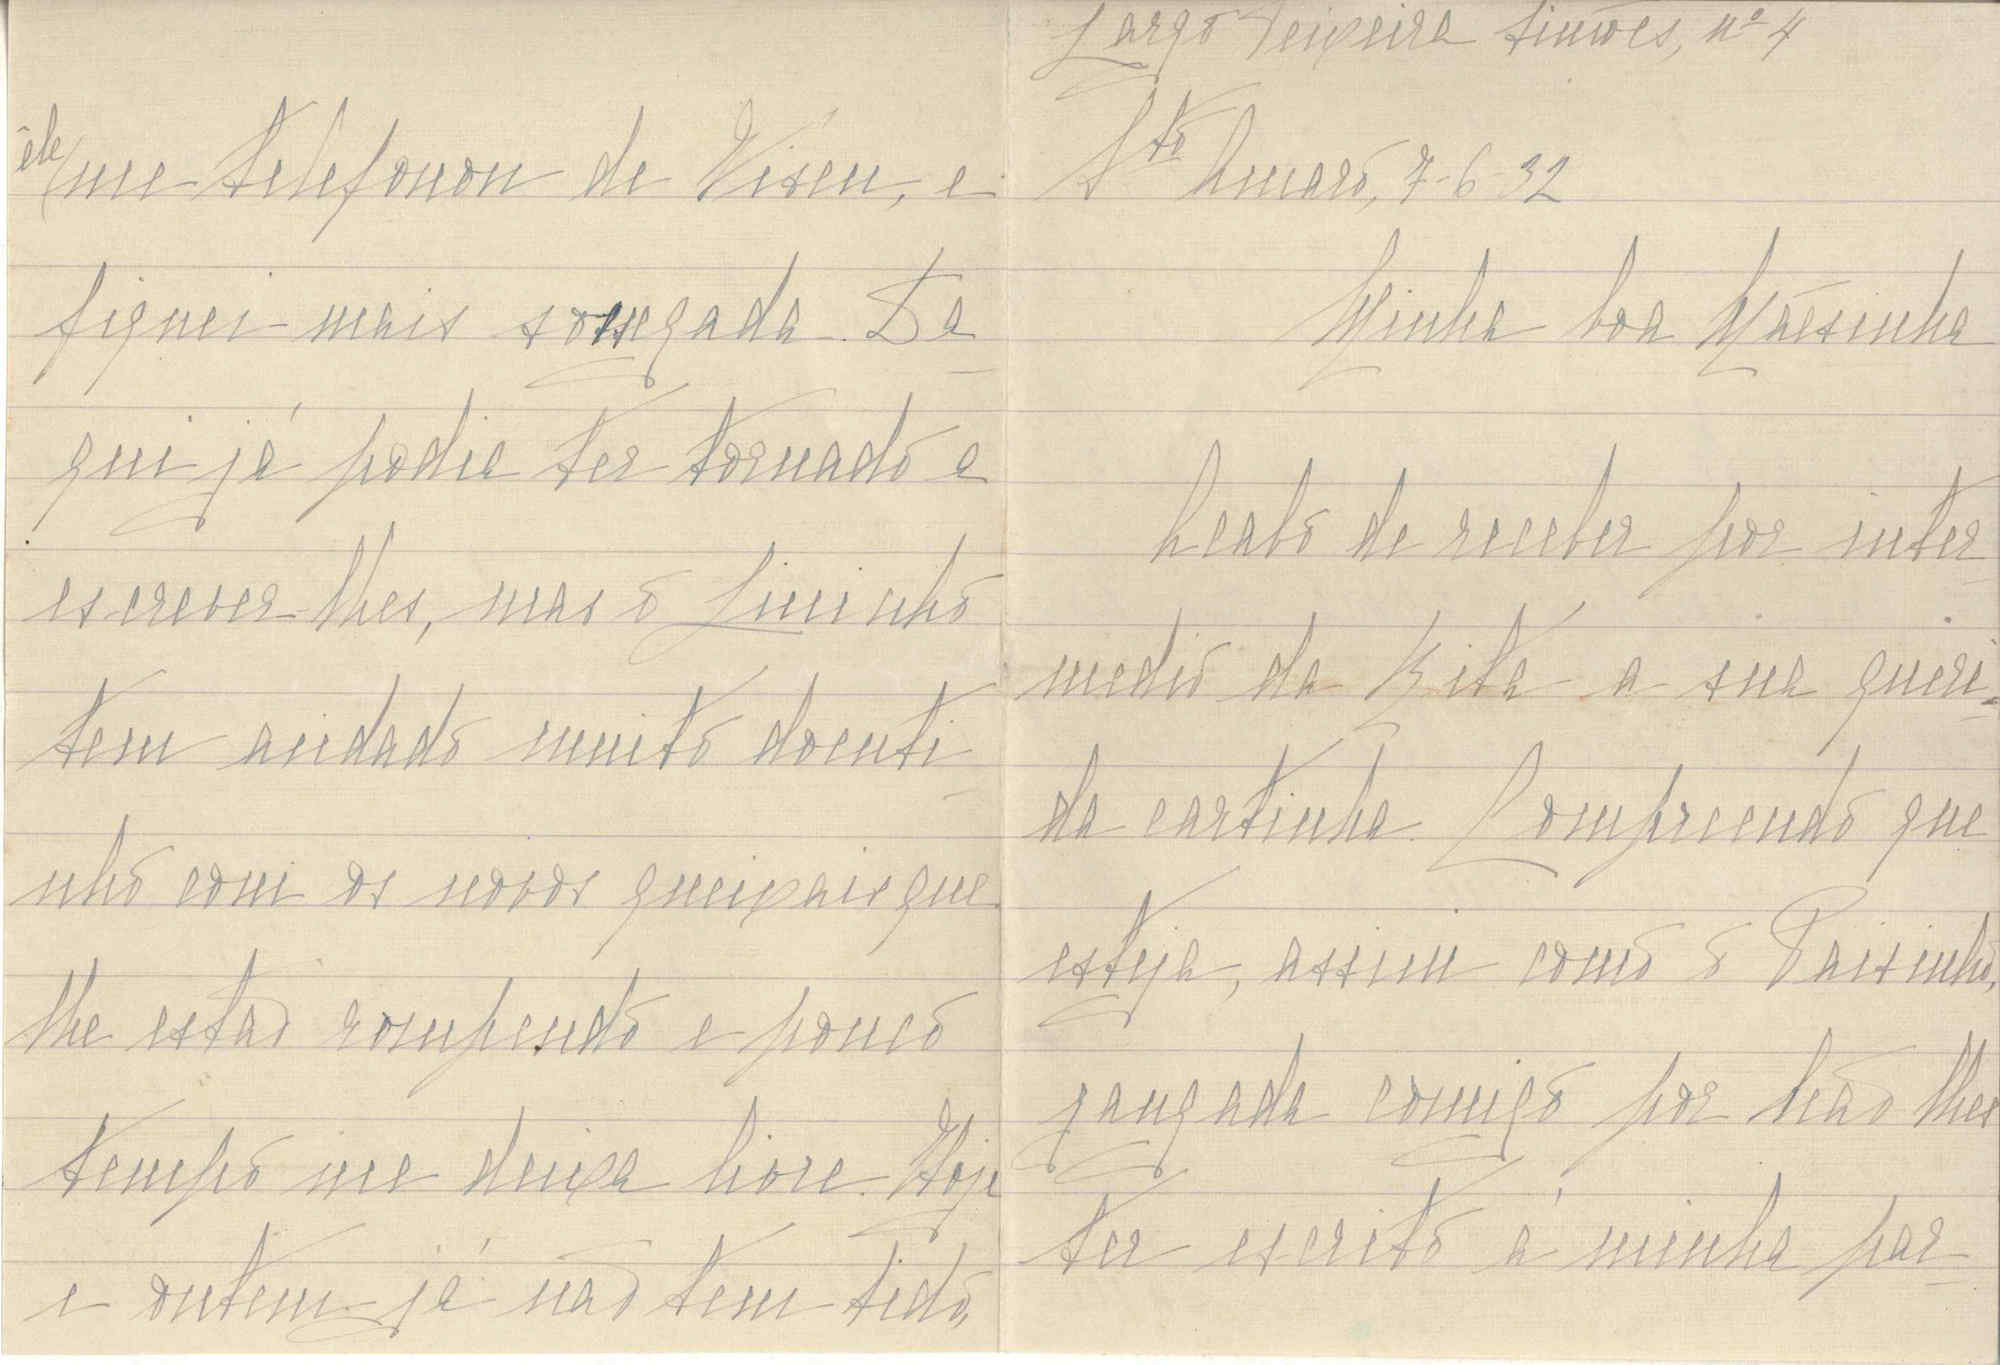 Largo Teixeira Simões, nº 4
Sto Amaro, 7-6-32
Minha boa Mãesinha
Acabo de receber por inter
medio da Rita a sua queri
da cartinha. Compreendo que
esteja, assim como o Paisinho,
zangada comigo por não lhes
ter escrito á minha par
êle me telefonou de Viseu, e
fiquei mais socegada. Da
qui já podia ter tornado a
escrever-lhes, mas o Luisinho
tem andado muito doenti
nho com os novos queixais que
lhe estão rompendo e pouco
tempo me deixa livre. Hoje
e ontem já não tem tido,